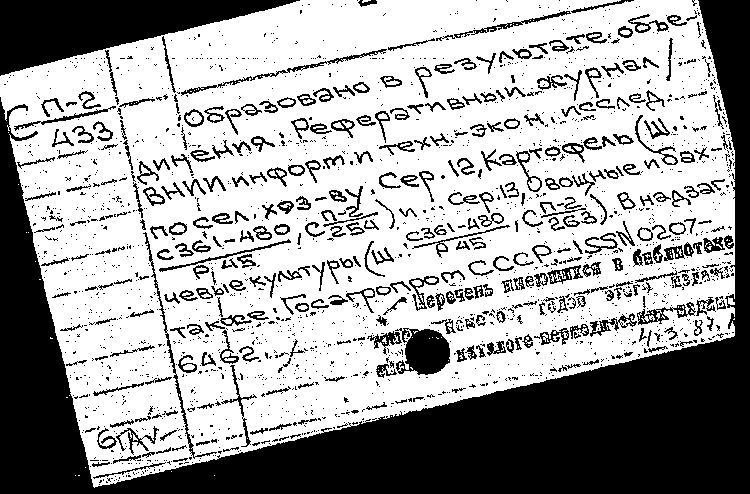 С П-2/433
Образовано в результате объе-
динения: Реферативный журнал /
ВНИИ информ. и техн.-экон. исслед.
по сел. хоз-ву. Сер. 12, Картофель (Ш.:
С361-480/Р45, С П-2/254) и ... Сер. 13, Овощные и бах-
чевые культуры (Ш.: С361-480/Р45, С П-2/263). В надзаг.
также: Госагропром СССР.-ISSN 0207-
6462. /
Перечень имеющихся в библиотеке
годов этого
каталоге периодических
4.3.87.